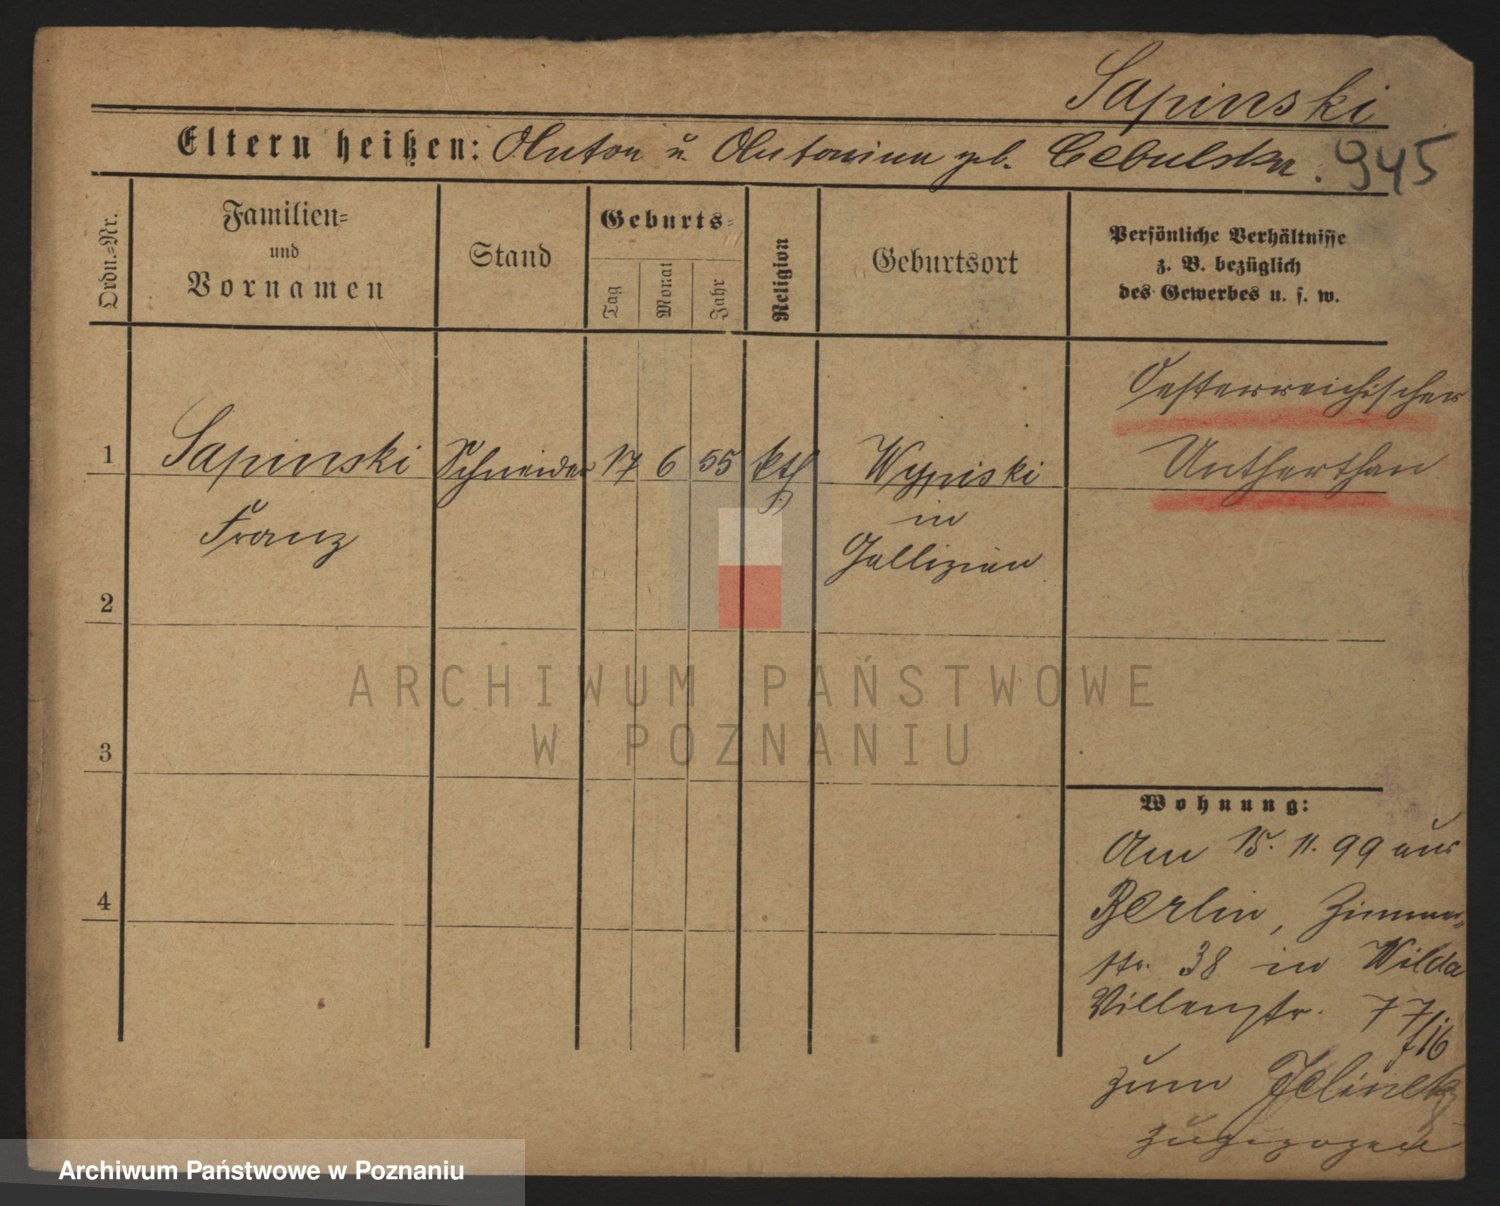 Sapinski
Eltern heißen: Anton u. Antonina geb. Cebulska.
945
Ordn.-Nr.
Familien-
und
Vornamen
Stand
Geburts-
Tag
Monat
Jahr
Religion
Geburtsort
Persönliche Verhältnisse
z. B. bezüglich
des Gewerbes u. s. w.
1
Sapinski
Franz
Schneider
17
6
55
kth
Wypiski
in
Gallizien
Oesterreichischer
Unterthan
2
3
4
ARCHIWUM PAŃSTWOWE
W POZNANIU
Wohnung:
Am 15. 11. 99 aus
Berlin, Zimmer-
str. 38 in Wilda
Villenstr. 7
zum Jelinek
zugezogen
Archiwum Państwowe w Poznaniu